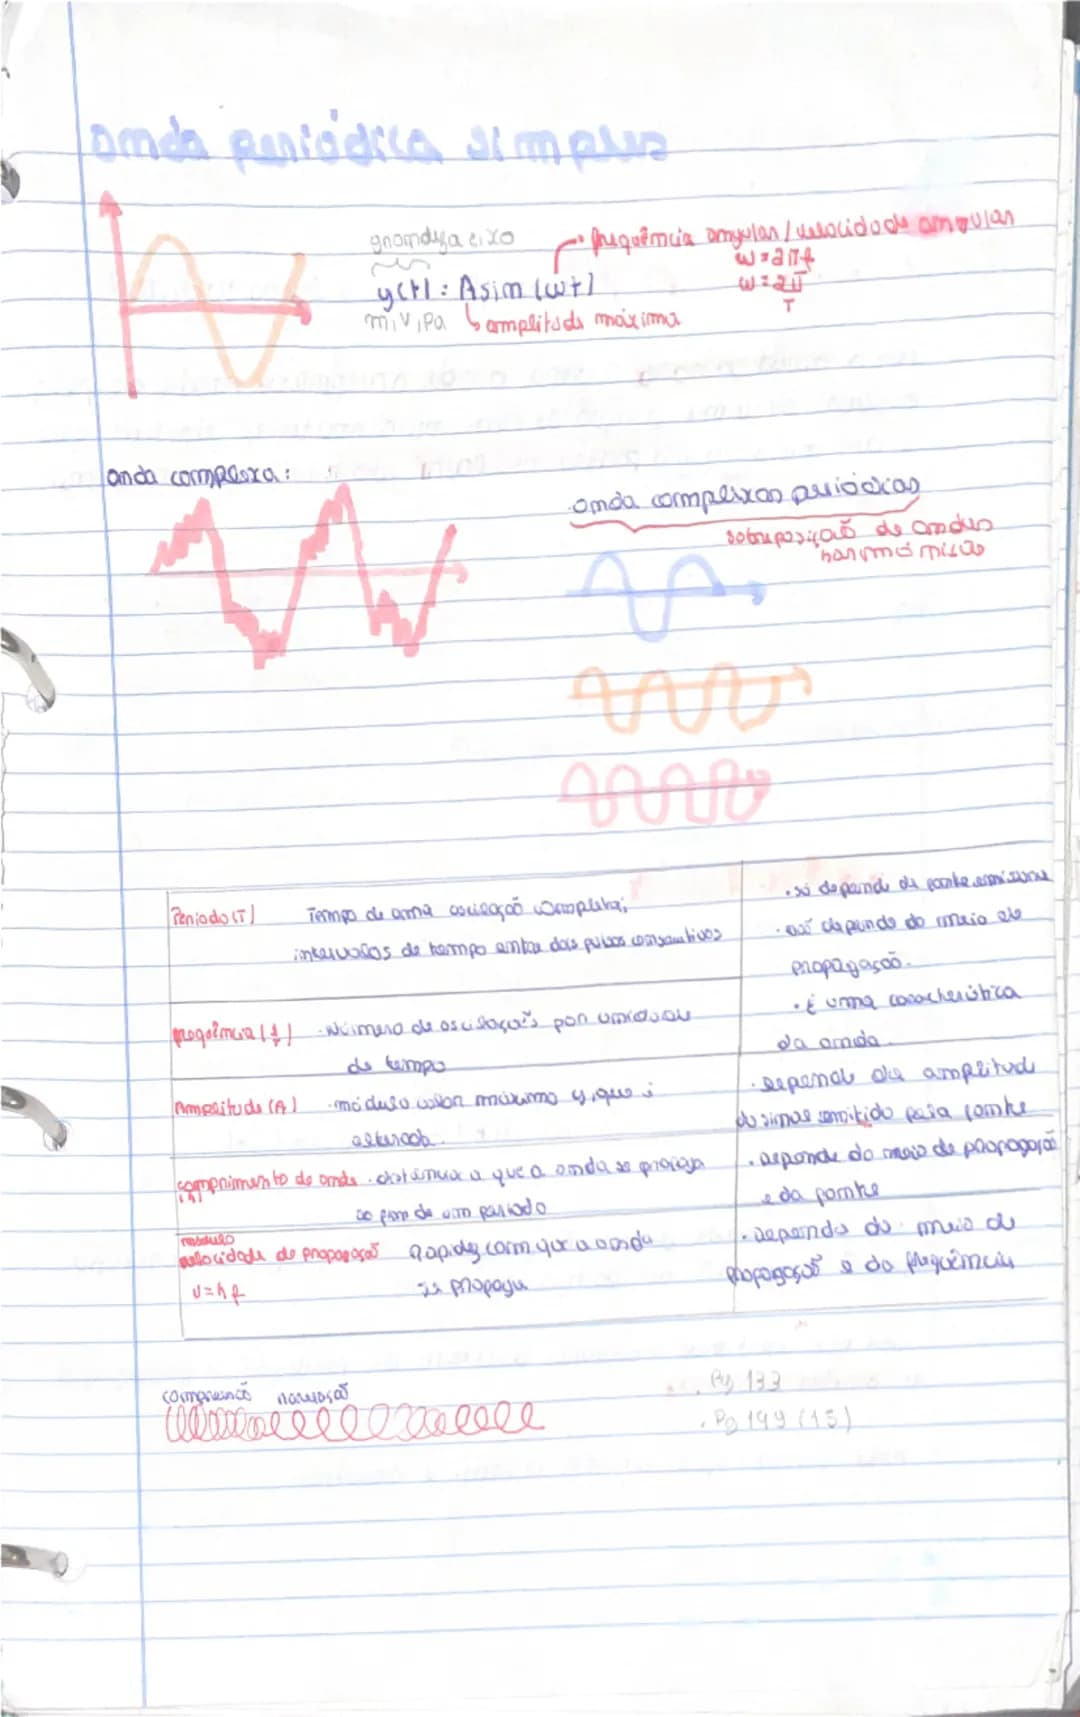 onda periódica simples
grandeza eixo
frequência angular / velocidade angular
ω = 2πf
y(t) = A sin (ωt)
ω = 2π
T
m, V, Pa
amplitude máxima
onda complexa:
onda complexas periódicas
sobreposição de ondas
harmónicas
Período (T)
Tempo de uma oscilação completa;
intervalos de tempo entre dois pulsos consecutivos
. só depende da fonte emissora
. não depende do meio de
propagação.
. é uma característica
da onda.
frequência (f)
. Número de oscilações por unidade
de tempo
Amplitude (A)
. módulo valor máximo y, que é
. depende da amplitude
do sinal emitido pela fonte
comprimento de onda
. distância a que a onda se propaga
ao fim de um período
. depende do meio de propagação
e da fonte
módulo
velocidade de propagação
v = λ f
Rapidez com que a onda
se propaga
. depende do meio de
propagação e da frequência
compressão
rarefação
. Pg 133
. Pg 149 (15)